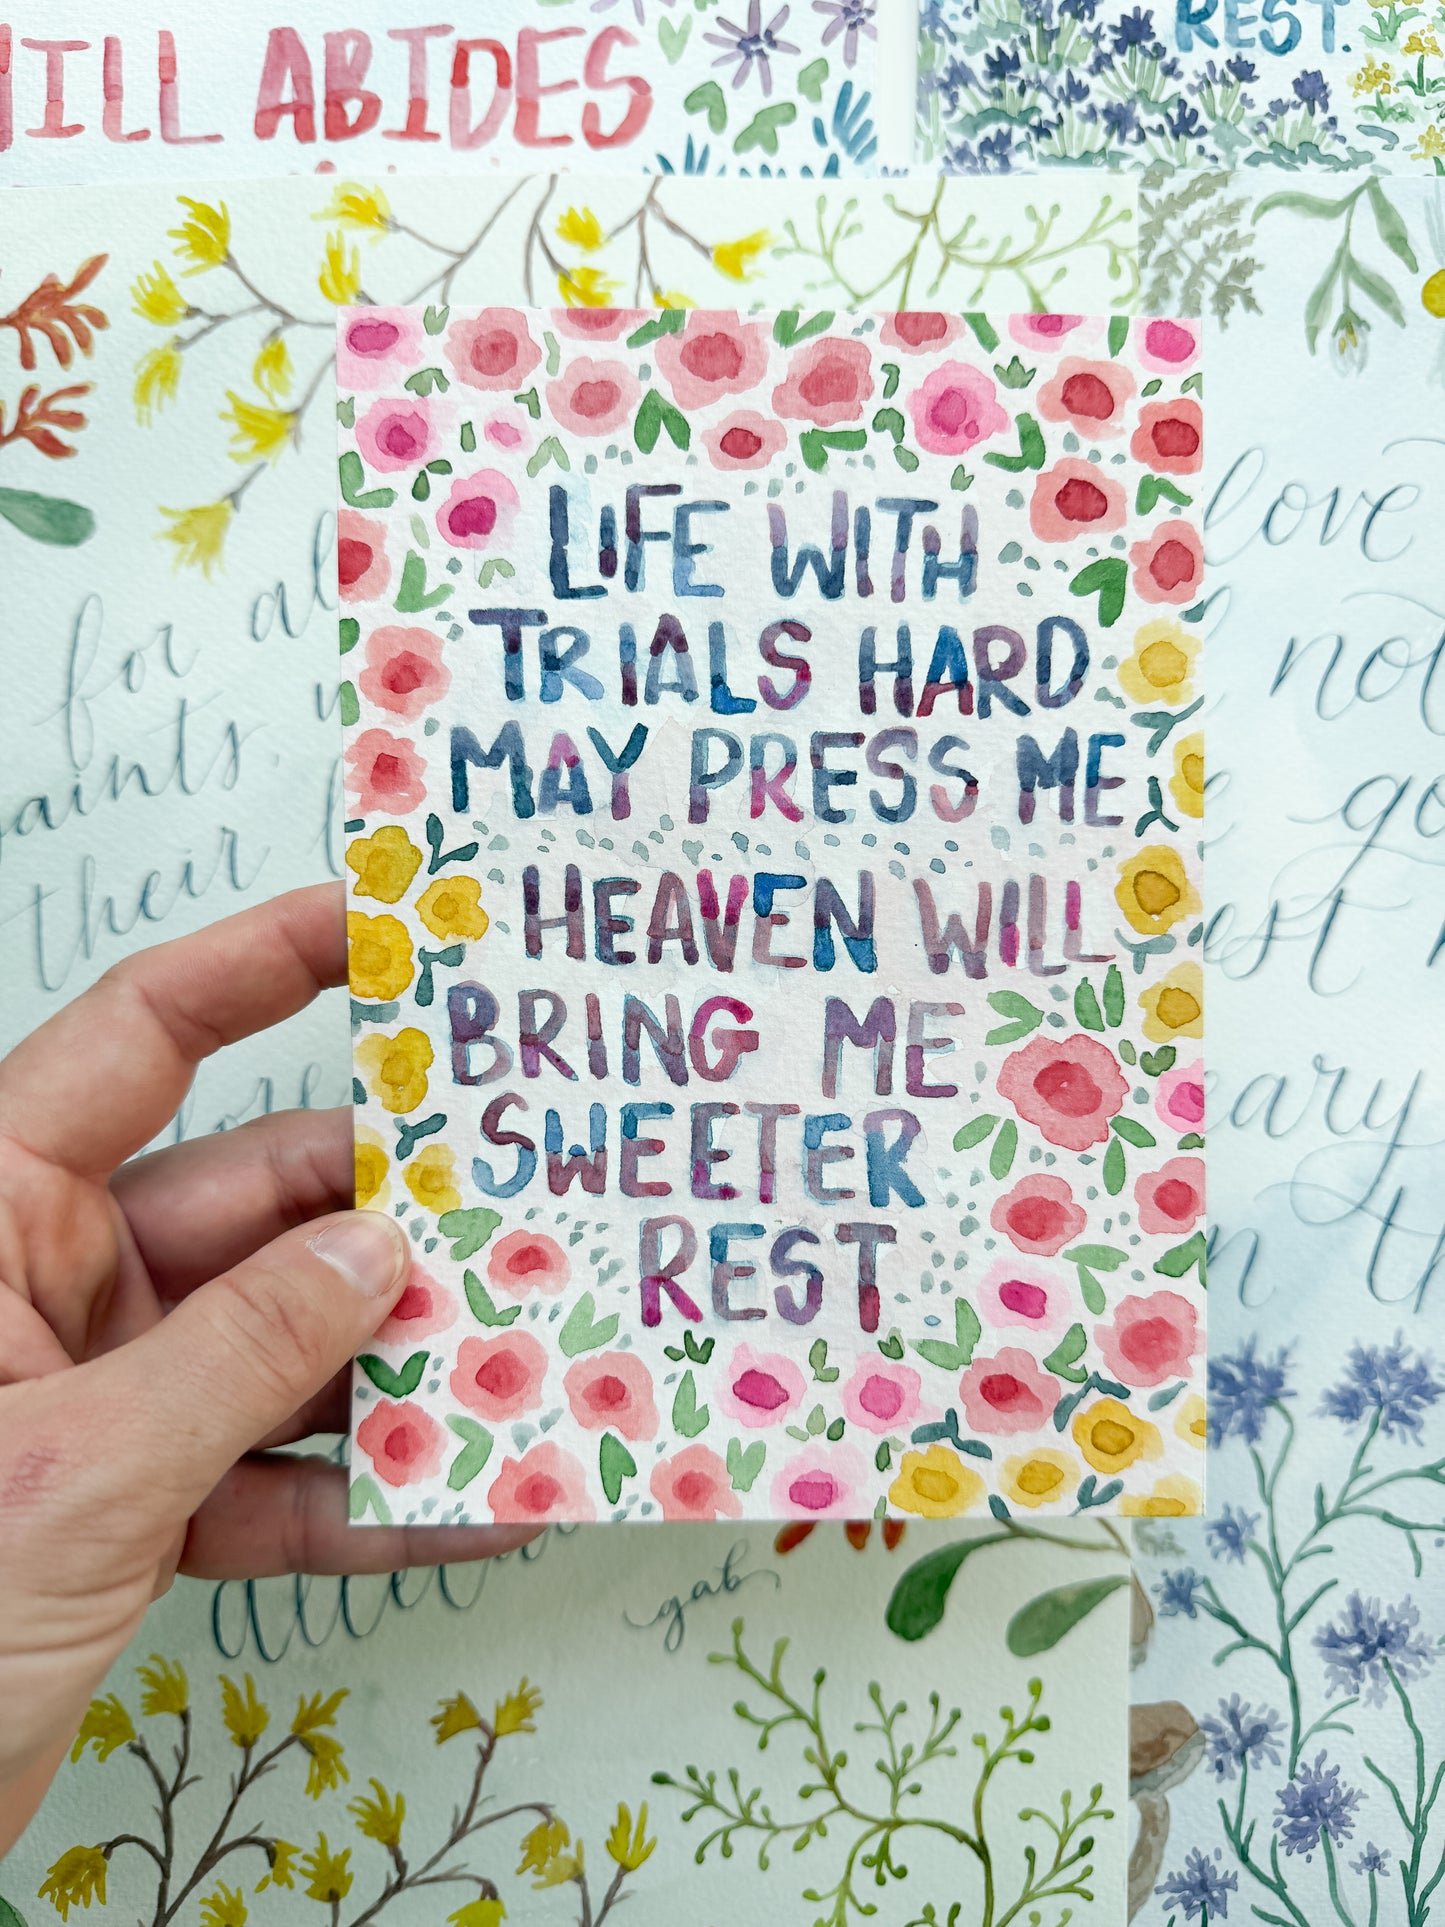 ILL ABIDES
REST.
LIFE WITH
TRIALS HARD
MAY PRESS ME
HEAVEN WILL
BRING ME
SWEETER
REST
for al
saints,
their
love
not
go
est
eary
th
gab